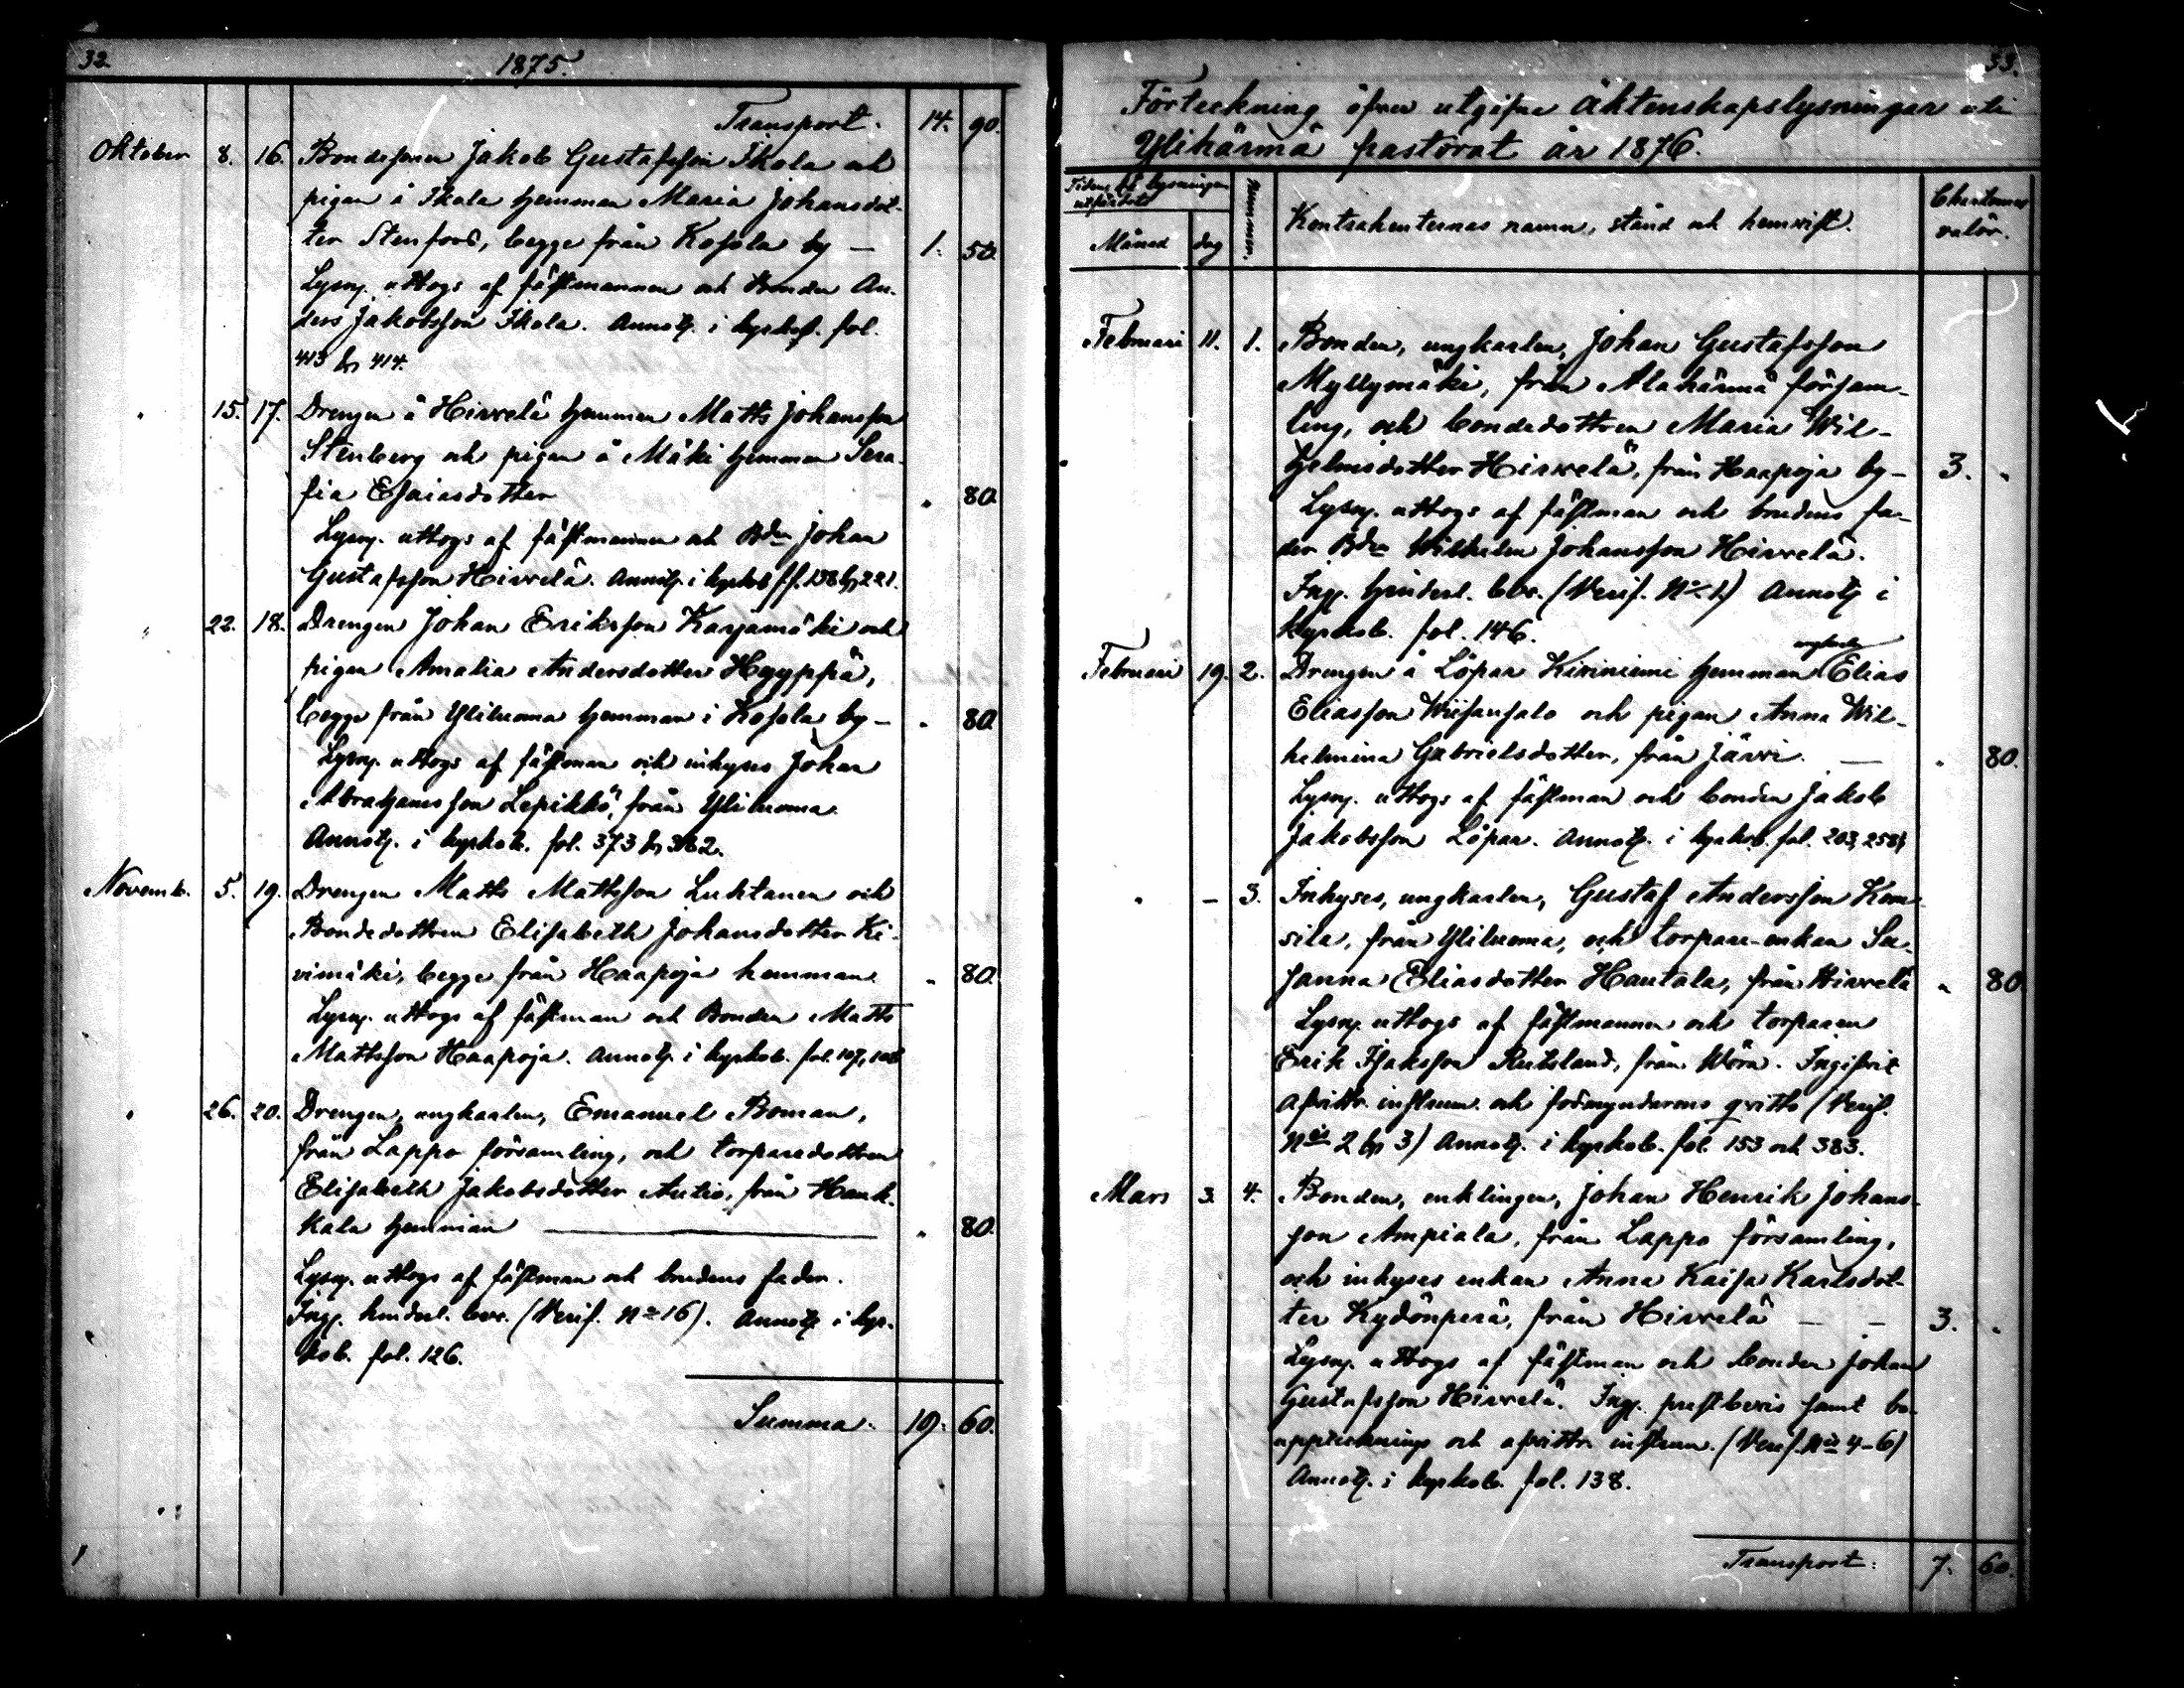 32.
1875.
Transport. 14. 90.
Oktober 8. 16. Bondesonen Jakob Gustafsson Ikola och
pigan å Ikola hemman Maria Johansdot-
ter Stenfors, begge från Kosola by — 1. 50.
Lysng. uttogs af fästmannen och Bonden An-
ders Jakobsson Ikola. Annotg. i kyrkob. fol.
413 & 414.
" 15. 17. Drengen å Hirvelä hemman Matts Johansson
Stenberg och pigan å Mäki hemman Sera-
fia Esaiasdotter " 80.
Lysng. uttogs af fästmannen och Bdn Johan
Gustafsson Hirvelä. Annotg. i kyrkob. ff. 138 & 221.
" 22. 18. Drengen Johan Eriksson Karjamäki och
pigan Amalia Andersdotter Hyyppä,
begge från Yliluoma hemman i Kosola by — " 80.
Lysng. uttogs af fästman och inhyses Johan
Abrahamsson Lepikkö, från Yliluoma.
Annotg. i kyrkob. fol. 373 & 382.
Novemb. 5. 19. Drengen Matts Mattsson Luhtanen och
Bondedottren Elisabeth Johansdotter Ki-
vimäki, begge från Haapoja hemman " 80.
Lysng. uttogs af fästman och Bonden Matts
Mattsson Haapoja. Annotg. i kyrkob. fol. 107, 108
" 26. 20. Drengen, ungkarlen, Emanuel Boman,
från Lappo församling, och torparedottren
Elisabeth Jakobsdotter Autio, från Hauk-
kala hemman — " 80.
Lysng. uttogs af fästman och brudens fader.
Ingg. hinderl. bev. (Verif. No 16). Annotg. i kyr-
kob. fol. 126.
Summa. 19. 60.
33.
Förteckning öfver utgifna äktenskapslysningar uti
Ylihärmä pastorat år 1876.
Tiden då lysningen
utfärdats
Månad dag Nummer. Kontrahenternas namn, stånd och hemvist. Chartæ
valör.
Februari 11. 1. Bonden, ungkarlen, Johan Gustafsson
Myllymäki, från Alahärmä försam-
ling, och bondedottren Maria Wil-
helmsdotter Hirvelä, från Haapoja by — 3. "
Lysng. uttogs af fästman och brudens fa-
der Bdn Wilhelm Johansson Hirvelä.
Ingg. hinderl. bev. (Verif. No 1) Annotg. i
kyrkob. fol. 146.
ungkarlen
Februari 19. 2. Drengen å Löpar Kiviniemi hemman Elias
Eliasson Wiisansalo och pigan Anna Wil-
helmina Gabrielsdotter, från Järvi. — " 80.
Lysng. uttogs af fästman och bonden Jakob
Jakobsson Löpar. Annotg. i kyrkob. fol. 203, 258.
" — 3. Inhyses, ungkarlen, Gustaf Andersson Kom-
sila, från Yliluoma, och torpare-enkan Su-
sanna Eliasdotter Hautala, från Hirvelä " 80
Lysng. uttogs af fästmannen och torparen
Erik Isaksson Rutsland, från Wörå. Ingifvit
afvittr. instrum. och förmyndarens qvitto (Verif.
Nis 2 & 3) Annotg. i kyrkob. fol. 153 och 383.
Mars 3. 4. Bonden, enklingen, Johan Henrik Johans-
son Ampiala, från Lappo församling,
och inhyses enkan Anna Kaisa Karlsdot-
ter Kydönperä, från Hirvelä — — 3. "
Lysng. uttogs af fästman och bonden Johan
Gustafsson Hirvelä. Ingg. prestbevis samt bo-
upptecknings och afvittr. instrum. (Verif. Nis 4-6)
Annotg. i kyrkob. fol. 138.
Transport: 7. 60.